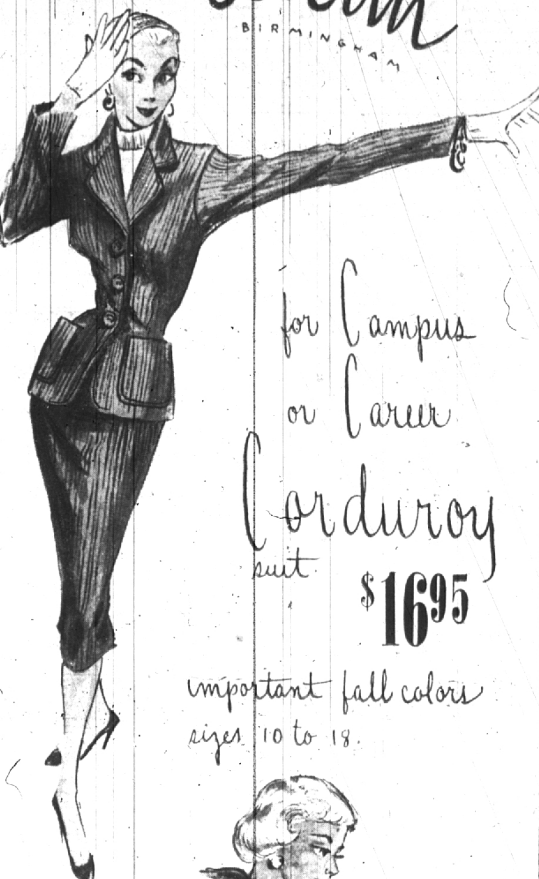 BIRMINGHAM
for Campus
or Career
Corduroy
suit
$16.95
important fall colors
sizes 10 to 18.